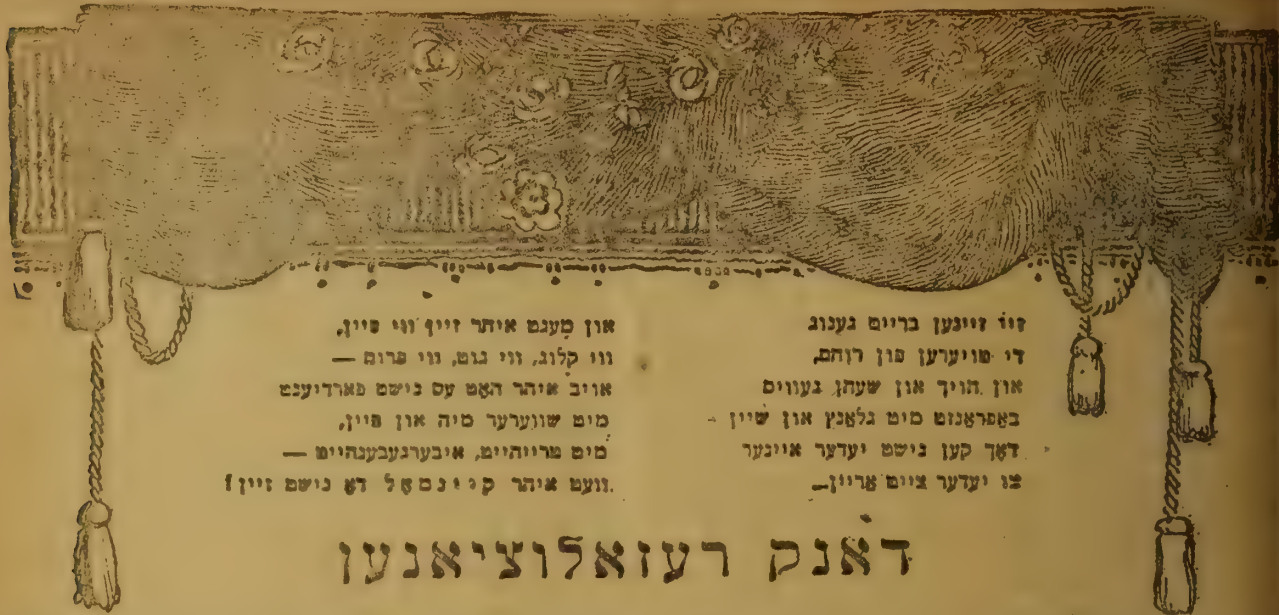 זיי זיינען ברייט גענוג
די טויערען פון רוהם,
און הויך און שעהן געווים
באפראנזט מיט גלאנץ און שיין —
דאך קען נישט יעדער איינער
צו יעדער צייט אריין—
און מעגט איהר זיין ווי פיין,
ווי קלוג, ווי גוט, ווי פרום —
אויב איהר האט עס נישט פארדיענט
מיט שווערער מיה און פיין,
מיט טרייהייט, איבערגעבענהייט —
וועט איהר קיינמאל דא נישט זיין!
דאנק רעזאלוציאנען